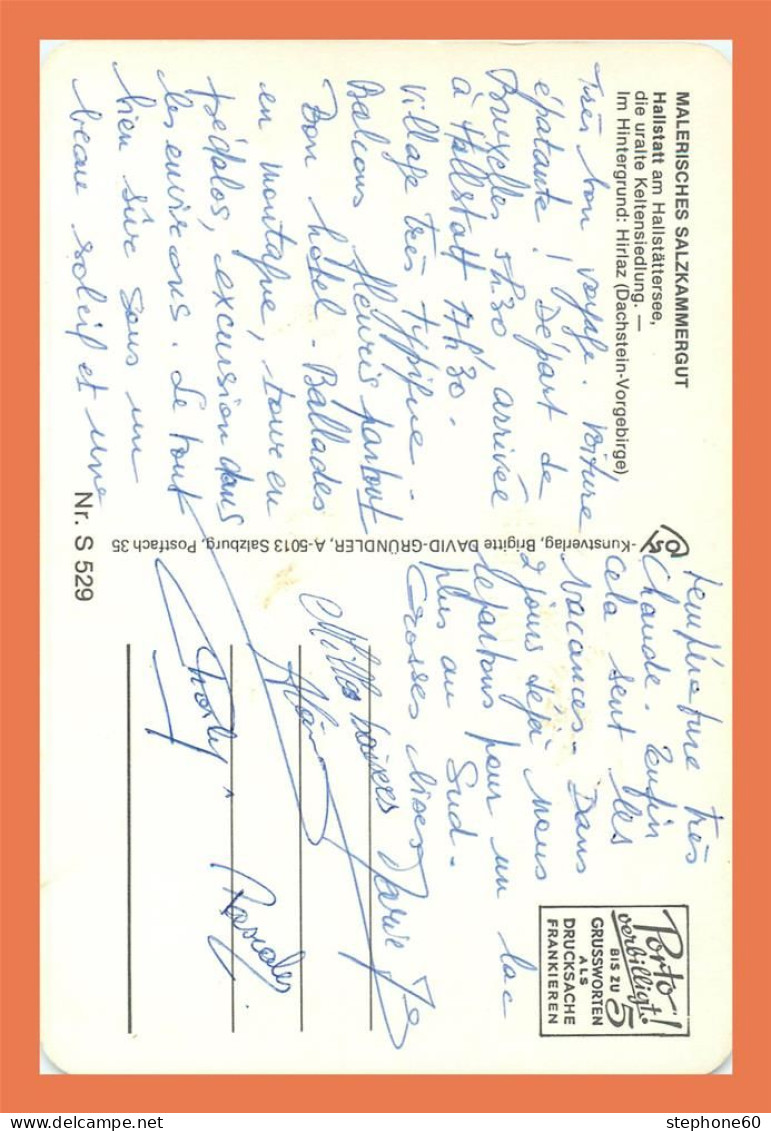 MALERISCHES SALZKAMMERGUT
Hallstatt am Hallstättersee,
die uralte Keltensiedlung. —
Im Hintergrund: Hirlaz (Dachstein-Vorgebirge)
Très bon voyage. Voiture
épatante ! Départ de
Bruxelles 5h30, arrivée
à Hallstatt 17h30.
Village très typique
Balcons fleuris partout
Bon hôtel - Ballades
en montagne, tour en
pédalos, excursion dans
les environs. Le tout
bien sûr sous un
beau soleil et une
Nr. S 529
-Kunstverlag, Brigitte DAVID-GRÜNDLER, A-5013 Salzburg, Postfach 35
température très
chaude. Enfin
cela sent les
vacances - Dans
2 jours déjà nous
repartons pour un lac
plus au Sud.
Grosses bises
Milles baisers Marie
Alain
Charly
Porto
verbilligt!
BIS ZU 5
GRUSSWORTEN
ALS
DRUCKSACHE
FRANKIEREN
stephone60